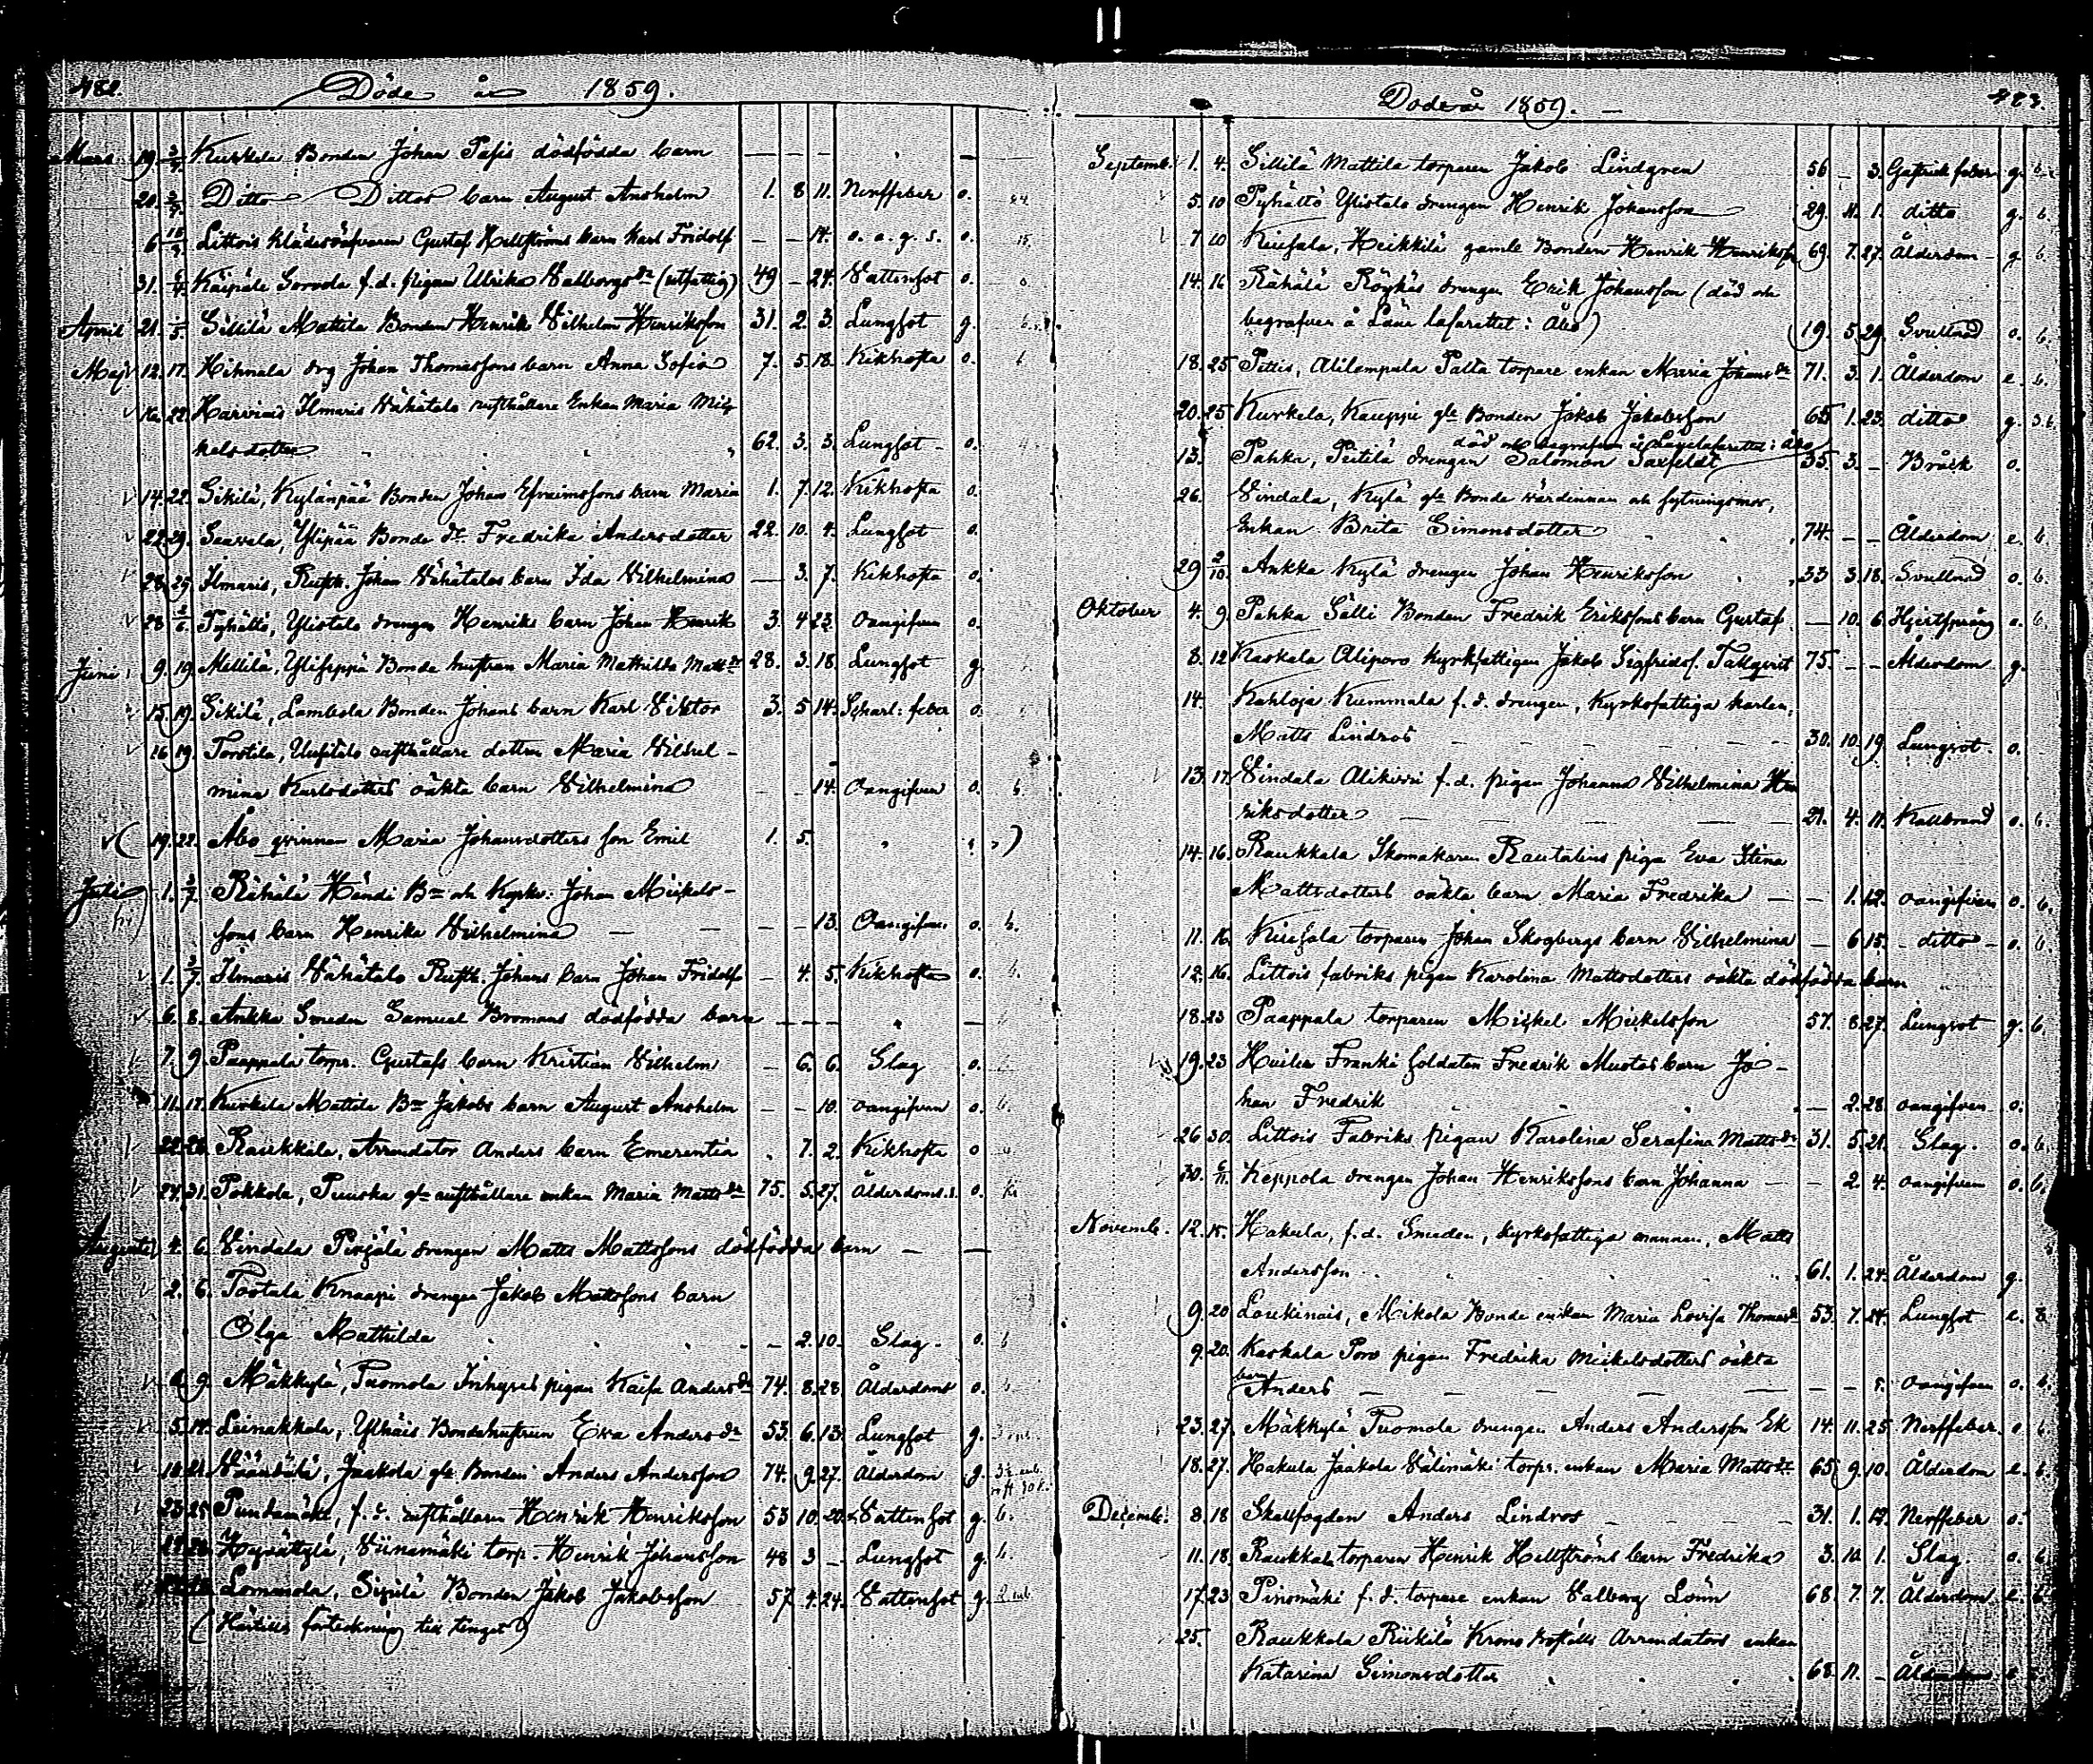 482.
Döde år 1859.
Mars 19. 3/4. Kurkela Bonden Johan Pafis dödfödda barn — — — " —
20. 3/4. Ditto Dittos barn August Anshelm 1. 8 11. Nerffeber o.
6 Littois Klädesväfvaren Gustaf Hellströms barn Karl Fridolf — — 14. o. a. g. s. o.
31. Käipälä Sorvola f.d. pigan Ulrika Valborgsdr (utfattig) 49 — 24. Vattensot o.
April 21. 5. Sillilä Mattila Bonden Henrik Vilhelm Henriksson 31. 2. 3. Lungsot g.
Maj 12. 17. Hihnala drg Johan Thomassons barn Anna Sofia 7. 5. 18. Kikhosta o.
22. Harvinais Ilmaris Vähätalo rusthållare Enkan Maria Mic
kelsdotter 62. 3. 3. Lungsot o.
14. 22. Sikilä, Kylänpää Bonden Johan Efraimssons barn Maria 1. 7. 12. Kikhosta o.
22. 29. Saavala, Ylipää Bonde dr. Fredrika Andersdotter 22. 10. 4. Lungsot o.
28. 29. Ilmaris, Rusth. Johan Vähätalos barn Ida Vilhelmina — 3. 7. Kikhosta o.
28 2/6. Pyhältö, Ylistalo drengen Henriks barn Johan Henrik 3. 4 23. Oangifven o.
Juni 9. 19. Millilä, Ylisippä Bonde hustrun Maria Mathilda Mattsdr 28. 3. 18. Lungsot g.
15. 19. Sikilä, Lambola Bonden Johans barn Karl Viktor 3. 5 14. Scharl: feber o.
16 19. Torstila, Uusitalo rusthållare dottren Maria Vilhel-
mina Karlsdotters oäkta barn Vilhelmina — — 14. Oangifven o. 6.
19. 22. Åbo qvinnan Maria Johansdotters son Emil 1. 5. "
Juli 1. 3/7. Rähälä Händi Bn och Kyrkv: Johan Mickels-
sons barn Henrika Vilhelmina — — 13. Oangifven. o. 6.
1. 3/7. Ilmaris Vähätalo Rusth. Johans barn Johan Fridolf — 4. 5. Kikhosta o. 6.
6. 8. Ankka Smeden Samuel Bromans dödfödda barn — — — " —
7. 9. Paappala torpr. Gustafs barn Kristian Vilhelm — 6. 6. Slag o.
11. 17. Kurkela Mattila Bn Jakobs barn August Anshelm — — 10. oangifven o. 6.
22. 28. Raukkala, Arrendator Anders barn Emerentia . 7. 2. Kikhosta o
24. 31. Pokkola, Puuska gle rusthållare enkan Maria Mattsdr 75. 5. 27. Ålderdoms.s. o.
Augusti 4. 6. Vindala Perjälä drengen Matts Mattssons dödfödda barn — —
2. 6. Tootala Knaapi drengen Jakob Mattssons barn
Olga Mathilda — 2. 10. Slag. o. 6
6 9. Mäkkylä, Tuomola Inhyses pigan Kaisa Andersdr 74. 8. 28. Ålderdoms o. 6
5. 14. Leinakkala, Ylhäis Bondehustrun Eva Andersdr 53. 6. 13. Lungsot g.
Väänälä, Jaakola gle Bonden Anders Andersson 74. 9. 27. Ålderdom g.
23. 28. Pundamäki, f.d. rusthållaren Henrik Henriksson 53 10. 20. Vattensot g. 6.
Hypöistylä, Viinamäki torp. Henrik Johansson 48 3 — Lungsot g. 6.
Lomanola, Sipilä Bonden Jakob Jakobsson 57 4. 24. Vattensot g.
(Härtills förteckning till tinget)
483.
Döde år 1859.
Septemb. 1. 4. Sillilä Mattila torparen Jakob Lindgren 56 — 3. Gastrisk feber g. 6.
5. 10 Pyhältö Ylistalo drengen Henrik Johansson 29. 11. 1. ditto g. 6.
7 10 Kuisala, Heikkilä gamle Bonden Henrik Henriksson 69. 7. 27. Ålderdom g 6.
14. 16 Rähälä Röykäs drengen Erik Johansson (död och
begrafven å Läne lasarettet i Åbo) 19. 5. 29. Svullnad o. 6.
18. 25 Pittis, Alilempula Palta torpare enkan Maria Johansdr 71. 3. 1. Ålderdom e. 6.
20. 25 Kurkela, Kauppi gle Bonden Jakob Jakobsson 65 1. 23. ditto g. 3.6.
död och begrafven å Länelasarettet i Åbo
13. Pahka, Peitilä drengen Salomon Saxfeldt 35. 3. — Bråck o.
26. Vindala, Kylä gle Bonde värdinnan och sytningsmor,
Enkan Brita Simonsdotter 74. — — Ålderdom e. 6.
29 2/10. Ankka Kylä drengen Johan Henriksson 33 3. 18. Svullnad o. 6.
Oktober 4. 9. Pahka Sälli Bonden Fredrik Erikssons barn Gustaf — 10. 6. Hjertsprång o. 6.
8. 12 Kaskala Aliporo kyrkfattigen Jakob Sigfridss. Tallqvist 75. — — Ålderdom g.
14. Kahloja Kummala f.d. drengen, Kyrkofattiga karlen,
Matts Lindros 30. 10. 19. Lungrot. o.
13. 17. Vindala Alikirri f.d. pigan Johanna Vilhelmina Hen
riksdotter 21. 4. 11. Kallbrand o. 6.
14. 16. Raukkala Skomakaren Rautalins piga Eva Stina
Mattsdotters oäkta barn Maria Fredrika — 1. 12. oangifven o. 6.
11. 16. Kuisala torparen Johan Skogbergs barn Vilhelmina — 6 15. ditto o. 6.
12. 16. Littois fabriks pigan Karolina Mattsdotters oäkta dödfödda barn
18. 23 Paappala torparen Mickel Mickelsson 57. 8. 27. Lungrot g. 6.
19. 23 Huilia Franki soldaten Fredrik Mustas barn Jo-
han Fredrik — 2. 28. oangifven o.
26 30. Littois Fabriks pigan Karolina Serafina Mattsdr 31. 5. 21. Slag. o. 6.
30. 6/11. Keppola drengen Johan Henrikssons barn Johanna — 2. 4. oangifven o. 6.
Novemb. 12. 15. Hakula, f.d. Smeden, kyrkofattiga mannen, Matts
Andersson 61. 1. 24. Ålderdom g.
9. 20 Loukinais, Mikola Bonde enkan Maria Lovisa Thomasdr 53. 7. 24. Lungsot e. 3.
9. 20. Kaskala Poro pigan Fredrika Mickelsdotters oäkta
barn Anders — — oangifven o. 6.
23. 27. Mäkkylä Tuomola drengen Anders Andersson Ek 14. 11. 25 Nerffeber. o. 6.
18. 27. Hakula Jaakola Välimäki torpr. enkan Maria Mattsdr 65 9. 10. Ålderdom e. 6.
Decemb. 8. 18 Skallfogden Anders Lindros 31. 1. 17. Nerffeber o.
11. 18. Raukkala torparen Henrik Hellströms barn Fredrika 3. 10. 1. Slag. o. 6.
17. 23 Pinomäki f.d. torpare enkan Valborg Lönn 68. 7. 7. Ålderdom e. 6.
25. Raukkala Riikilä Krono Boställs Arrendators enkan
Katarina Simonsdotter 68 11. — Ålderdom e